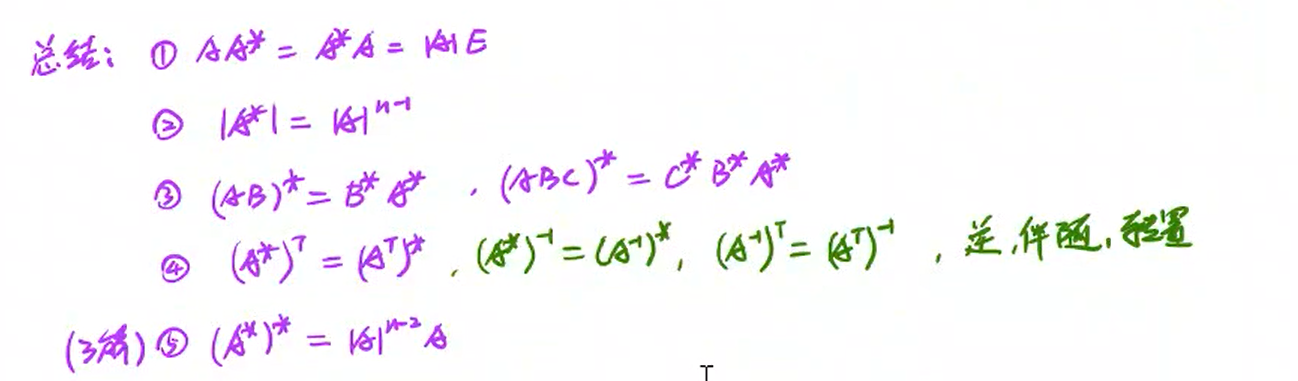 总结: ① AA* = A*A = |A|E
② |A*| = |A|ⁿ⁻¹
③ (AB)* = B*A* , (ABC)* = C*B*A*
④ (A*)ᵀ = (Aᵀ)* , (A*)⁻¹ = (A⁻¹)*, (A⁻¹)ᵀ = (Aᵀ)⁻¹ , 逆,伴随,转置
(了解) ⑤ (A*)* = |A|ⁿ⁻²A